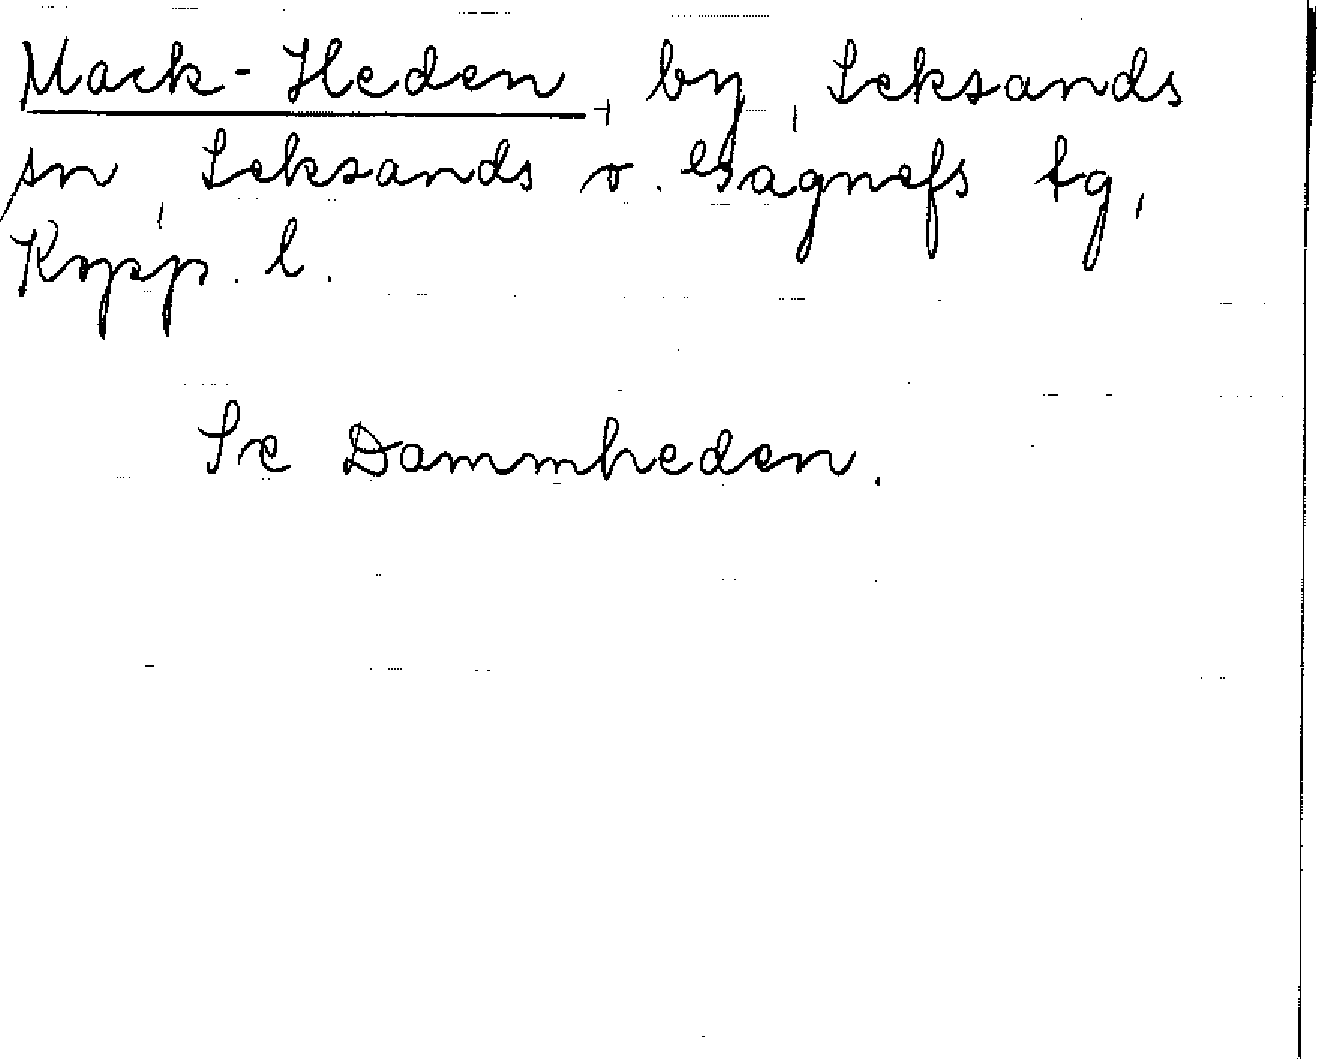 Mack-Heden, by, Leksands
sn, Leksands o. Gagnefs tg,
Kopp. l.
Se Dammheden.